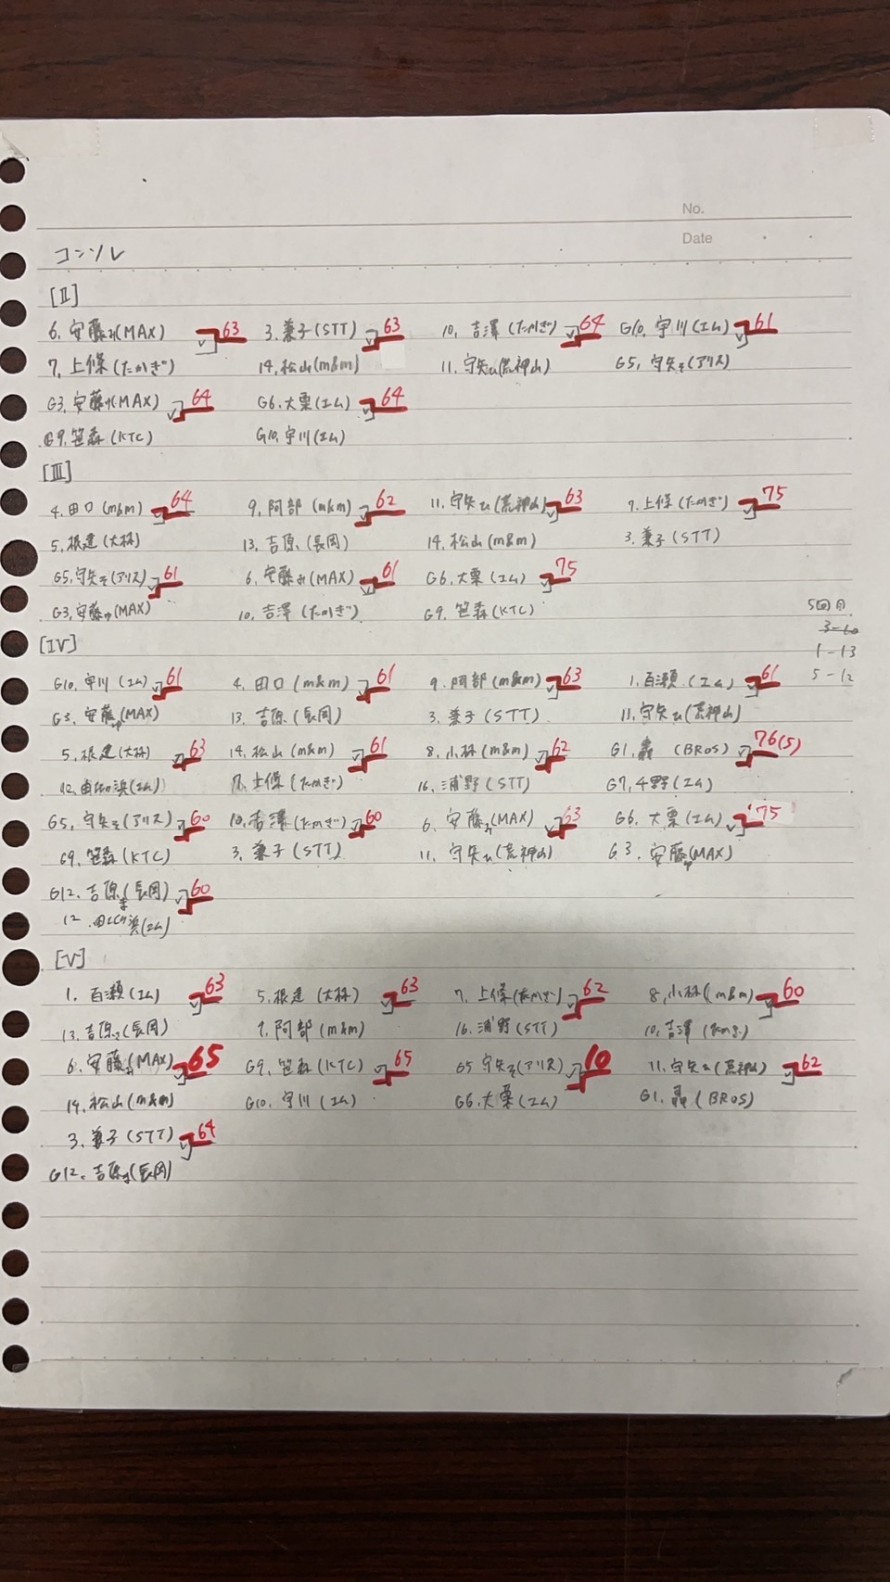 No.
Date
コンソレ
[II]
6. 安藤み(MAX) 63 3. 兼子(STT) 63 10. 吉澤(たかぎ) 64 G10. 宇川(エム) 61
7. 上條(たかぎ) 14. 松山(m&m) 11. 守矢ひ(荒神山) G5. 守矢そ(アリス)
G3. 安藤(MAX) 64 G6. 大栗(エム) 64
G9. 笹森(KTC) G10. 宇川(エム)
[III]
4. 田口(m&m) 64 9. 阿部(m&m) 62 11. 守矢ひ(荒神山) 63 7. 上條(たかぎ) 75
5. 根建(大林) 13. 吉原(長岡) 14. 松山(m&m) 3. 兼子(STT)
G5. 守矢そ(アリス) 61 6. 安藤み(MAX) 61 G6. 大栗(エム) 75
G3. 安藤(MAX) 10. 吉澤(たかぎ) G9. 笹森(KTC)
5回目
3-10
1-13
5-12
[IV]
G10. 宇川(エム) 61 4. 田口(m&m) 61 9. 阿部(m&m) 63 1. 百瀬(エム) 61
G3. 安藤(MAX) 13. 吉原(長岡) 3. 兼子(STT) 11. 守矢ひ(荒神山)
5. 根建(大林) 63 14. 松山(m&m) 61 8. 小林(m&m) 62 G1. 轟(BROS) 76(5)
12. 浜(エム) 7. 上條(たかぎ) 16. 浦野(STT) G7. 千野(エム)
G5. 守矢そ(アリス) 60 10. 吉澤(たかぎ) 60 6. 安藤み(MAX) 63 G6. 大栗(エム) 75
G9. 笹森(KTC) 3. 兼子(STT) 11. 守矢ひ(荒神山) G3. 安藤(MAX)
G12. 吉原(長岡) 60
12. 浜(エム)
[V]
1. 百瀬(エム) 63 5. 根建(大林) 63 7. 上條(たかぎ) 62 8. 小林(m&m) 60
13. 吉原(長岡) 9. 阿部(m&m) 16. 浦野(STT) 10. 吉澤(たかぎ)
6. 安藤み(MAX) 65 G9. 笹森(KTC) 65 G5 守矢そ(アリス) 10 11. 守矢ひ(荒神山) 62
14. 松山(m&m) G10. 宇川(エム) G6. 大栗(エム) G1. 轟(BROS)
3. 兼子(STT) 64
G12. 吉原(長岡)